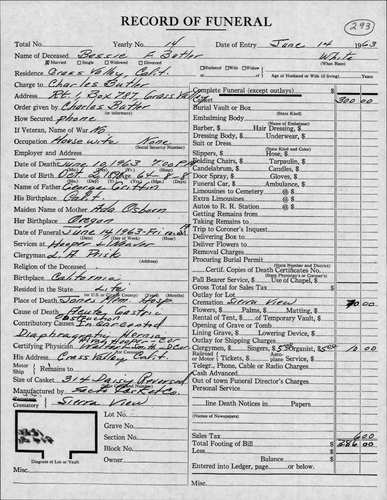 RECORD OF FUNERAL
293
Total No. Yearly No. 14 Date of Entry June 14 1963
Name of Deceased Bessie F. Butler White
(What Race)
Married Single Widowed Divorced Husband Wife Widow
Residence Grass Valley, Calif. Age of Husband or Wife (if living) Years
Charge to Charles Butler Complete Funeral (except outlays) $
Address Rt. 1 Box 787, Grass Valley Casket 300 00
Order given by Charles Butler Burial Vault or Box
(or informant) (State Kind)
How Secured Phone Embalming Body
(Name of Embalmer)
If Veteran, Name of War No Barber, $ Hair Dressing, $
Occupation Housewife None Dressing Body, $ Underwear, $
(Social Security Number) Suit or Dress
(State Kind and Color)
Employer and Address Slippers, $ Hose, $
Date of Death June 10, 1963 7:00 P.M. Folding Chairs, $ Tarpaulin, $
Date of Birth Oct. 2, 1898 64-8-8 Candelabrum, $ Candles, $
Name of Father George Griffin Door Spray, $ Gloves, $
His Birthplace Calif. Funeral Car, $ Ambulance, $
Maiden Name of Mother Ada Osborn Limousines to Cemetery @ $
Her Birthplace Oregon Extra Limousines @ $
Date of Funeral June 14, 1963 Fri. Autos to R. R. Station @ $
Services at Hooper & Weaver Getting Remains from
Clergyman L.A. Frisk Taking Remains to
(Address) Trip to Coroner's Inquest
Religion of the Deceased Delivering Box to
Birthplace California Deliver Flowers to
Resided in the State Life Removal Charges
Place of Death Jones Mem. Hosp Procuring Burial Permit
(State Number and District)
Cause of Death Acute Gastric Certif. Copies of Death Certificates No.
Pall Bearer Service, $ Use of Chapel, $
Contributory Causes Gross Total for Sales Tax $
Diaphragmatic Hernia Outlay for Lot
Certifying Physician Cremation Sierra View 70 00
His Address Grass Valley Calif. Flowers, $ Palms, $ Matting, $
Motor Ship Remains to Rental of Tent, $ of Temporary Vault, $
Opening of Grave or Tomb
Size of Casket 314 Daisy Reversed Lining Grave, $ Lowering Device, $
Manufactured by Sacto Casket Co. Clergymen, $ Singers, $ 5.00 Organist, $ 5.00 10 00
Cemetery Railroad or Motor Tickets, $ Aeroplane Service, $
Crematory Sierra View Telegr., Phone, Cable or Radio Charges
Lot No. Cash Advanced
Grave No. Out of town Funeral Director's Charges
Section No. Personal Service
Block No. line Death Notices in Papers
Owner (Names of Newspapers)
Diagram of Lot or Vault Sales Tax $ 6 00
Misc. Total Footing of Bill $ 386 00
Misc. Less $
Misc. Balance $
Misc. Entered into Ledger, page or below.